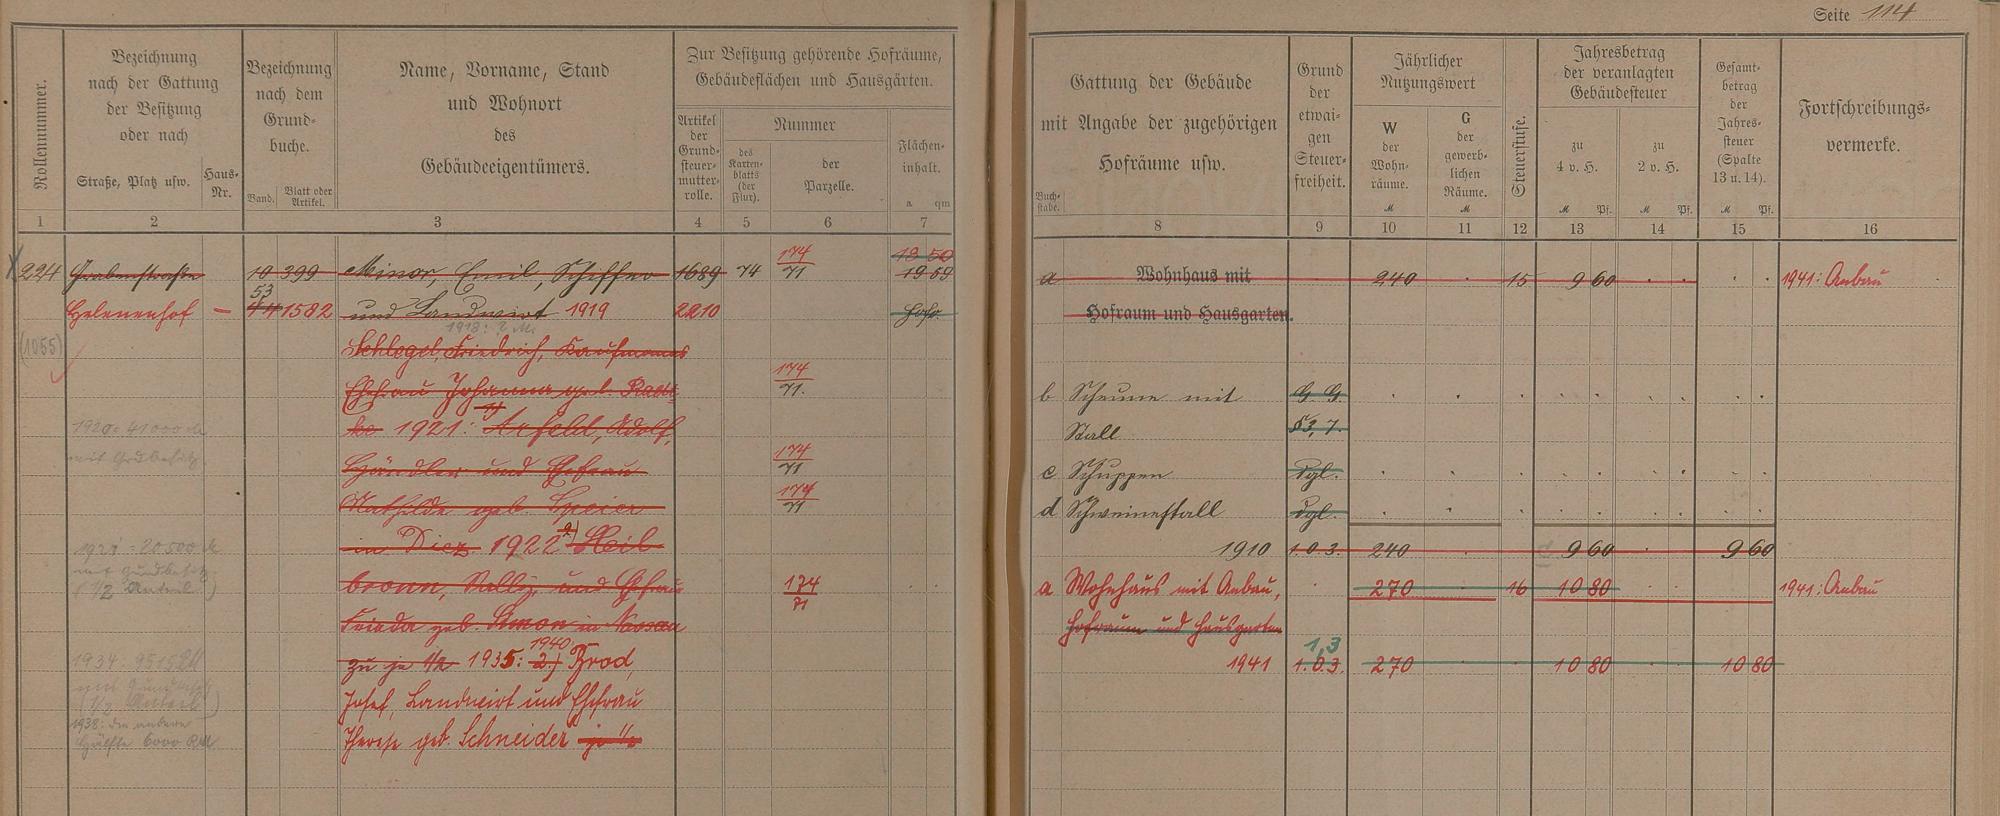 Seite 114
Rollennummer.
Bezeichnung
nach der Gattung
der Besitzung
oder nach
Straße, Platz usw.
Haus-
Nr.
Bezeichnung
nach dem
Grund-
buche.
Band.
Blatt oder
Artikel.
Name, Vorname, Stand
und Wohnort
des
Gebäudeeigentümers.
Zur Besitzung gehörende Hofräume,
Gebäudeflächen und Hausgärten.
Artikel
der
Grund-
steuer-
mutter-
rolle.
Nummer
des
Karten-
blatts
(der
Flur).
der
Parzelle.
Flächen-
inhalt.
a qm
1 2 3 4 5 6 7
224 Grabenstraße 10 399 Minor, Emil, Scheffer 1689 74 174/71 19 50
19 59
Helenenhof — 53
44 1582 und Landwirt 1919 2210 Hofr.
1918: 2 M.
(1055) Schlegel, Friedrich, Kaufmanns
Ehefrau Johanna geb. Radt- 174/71.
1920: 41000 M ke 1921: 1) Arfeld, Adolf,
mit Grdbesitz. Händler und Ehefrau 174/71
Mathilde geb. Speier 174/71
1921: 20500 M in Diez 1922 2) Heil-
mit Grundbesitz
(1/2 Anteil) bronn, Sally, und Ehefrau 174/71
Frieda geb. Simon in Nassau
1934: 9515 zu je 1/2 1935: 1940 2.) Brod,
(1/2 Anteil) Josef, Landwirt und Ehefrau
1938: die andere
Hälfte 6000 RM Therese geb. Schneider je 1/2
Buch-
stabe.
Gattung der Gebäude
mit Angabe der zugehörigen
Hofräume usw.
Grund
der
etwai-
gen
Steuer-
freiheit.
Jährlicher
Nutzungswert
W
der
Wohn-
räume.
M
G
der
gewerb-
lichen
Räume.
M
Steuerstufe.
Jahresbetrag
der veranlagten
Gebäudesteuer
zu
4 v. H.
M Pf.
zu
2 v. H.
M Pf.
Gesamt-
betrag
der
Jahres-
steuer
(Spalte
13 u. 14).
M Pf.
Fortschreibungs-
vermerke.
8 9 10 11 12 13 14 15 16
a Wohnhaus mit 240 . 15 9 60 . . . 1941: Anbau
Hofraum und Hausgarten.
b Scheune mit G. G.
Stall §3, 7.
c Schuppen dgl.
d Schweinestall dgl.
1910 1.0.3. 240 . 9 60 . 9 60
a Wohnhaus mit Anbau, . 270 . 16 10 80 . 1941: Anbau
Hofraum und Hausgarten
1,3
1941 1.0.3. 270 . 10 80 . 10 80